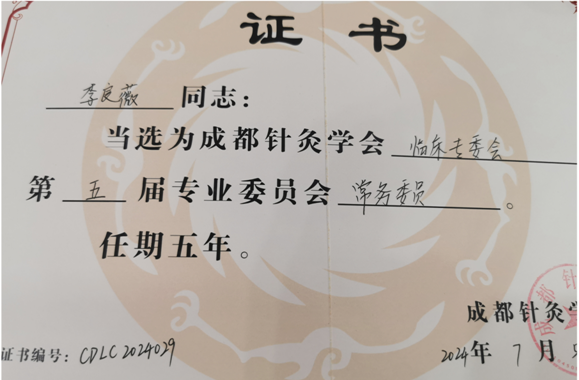 证书
李良薇 同志:
当选为成都针灸学会 临床专委会
第 五 届专业委员会 常务委员 。
任期五年。
成都针灸
证书编号: CDLC 2024029
2024年 7 月